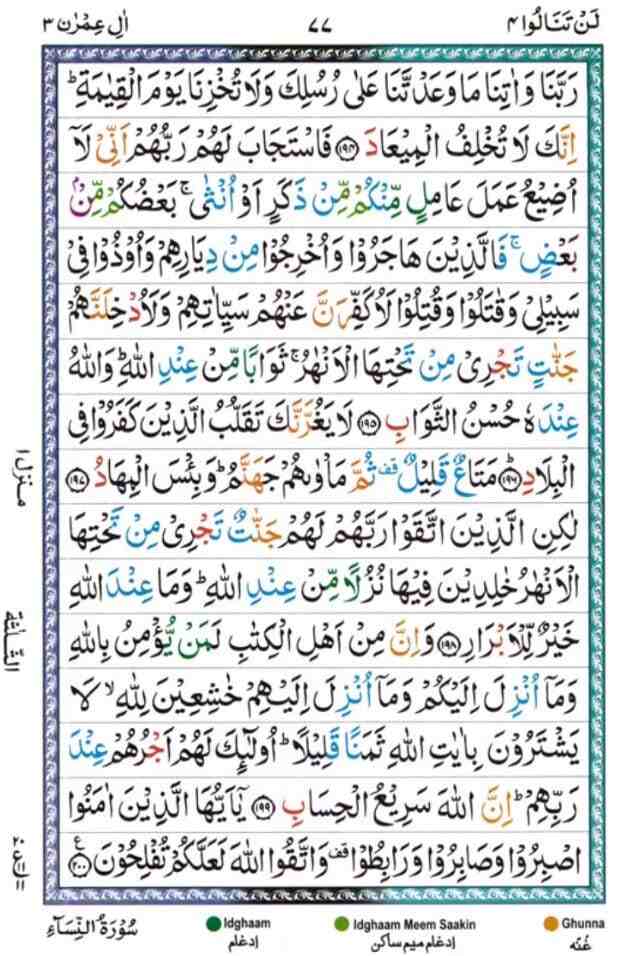 لَنْ تَنَالُوا ٤
٧٧
اٰلِ عِمْرٰن ٣
رَبَّنَا وَاٰتِنَا مَا وَعَدْتَّنَا عَلٰى رُسُلِكَ وَلَا تُخْزِنَا يَوْمَ الْقِيٰمَةِ ؕ
اِنَّكَ لَا تُخْلِفُ الْمِيْعَادَ ﴿۱۹۴﴾ فَاسْتَجَابَ لَهُمْ رَبُّهُمْ اَنِّىْ لَاۤ
اُضِيْعُ عَمَلَ عَامِلٍ مِّنْكُمْ مِّنْ ذَكَرٍ اَوْ اُنْثٰى ۚ بَعْضُكُمْ مِّنْۢ
بَعْضٍ ۚ فَالَّذِيْنَ هَاجَرُوْا وَاُخْرِجُوْا مِنْ دِيَارِهِمْ وَاُوْذُوْا فِىْ
سَبِيْلِىْ وَقٰتَلُوْا وَقُتِلُوْا لَاُكَفِّرَنَّ عَنْهُمْ سَيِّاٰتِهِمْ وَلَاُدْخِلَنَّهُمْ
جَنّٰتٍ تَجْرِىْ مِنْ تَحْتِهَا الْاَنْهٰرُ ۚ ثَوَابًا مِّنْ عِنْدِ اللّٰهِ ؕ وَاللّٰهُ
عِنْدَهٗ حُسْنُ الثَّوَابِ ﴿۱۹۵﴾ لَا يَغُرَّنَّكَ تَقَلُّبُ الَّذِيْنَ كَفَرُوْا فِى
الْبِلَادِ ﴿۱۹۶﴾ مَتَاعٌ قَلِيْلٌ قف ثُمَّ مَاْوٰىهُمْ جَهَنَّمُ ؕ وَبِئْسَ الْمِهَادُ ﴿۱۹۷﴾
لٰكِنِ الَّذِيْنَ اتَّقَوْا رَبَّهُمْ لَهُمْ جَنّٰتٌ تَجْرِىْ مِنْ تَحْتِهَا
الْاَنْهٰرُ خٰلِدِيْنَ فِيْهَا نُزُلًا مِّنْ عِنْدِ اللّٰهِ ؕ وَمَا عِنْدَ اللّٰهِ
خَيْرٌ لِّلْاَبْرَارِ ﴿۱۹۸﴾ وَاِنَّ مِنْ اَهْلِ الْكِتٰبِ لَمَنْ يُّؤْمِنُ بِاللّٰهِ
وَمَاۤ اُنْزِلَ اِلَيْكُمْ وَمَاۤ اُنْزِلَ اِلَيْهِمْ خٰشِعِيْنَ لِلّٰهِ ۙ لَا
يَشْتَرُوْنَ بِاٰيٰتِ اللّٰهِ ثَمَنًا قَلِيْلًا ؕ اُولٰٓئِكَ لَهُمْ اَجْرُهُمْ عِنْدَ
رَبِّهِمْ ؕ اِنَّ اللّٰهَ سَرِيْعُ الْحِسَابِ ﴿۱۹۹﴾ يٰۤاَيُّهَا الَّذِيْنَ اٰمَنُوا
اصْبِرُوْا وَصَابِرُوْا وَرَابِطُوْا قف وَاتَّقُوا اللّٰهَ لَعَلَّكُمْ تُفْلِحُوْنَ ﴿۲۰۰﴾ ع
منزل ۱
سُوْرَةُ النِّسَآءِ
Idghaam
إدغام
Idghaam Meem Saakin
إدغام ميم ساكن
Ghunna
غُنّه